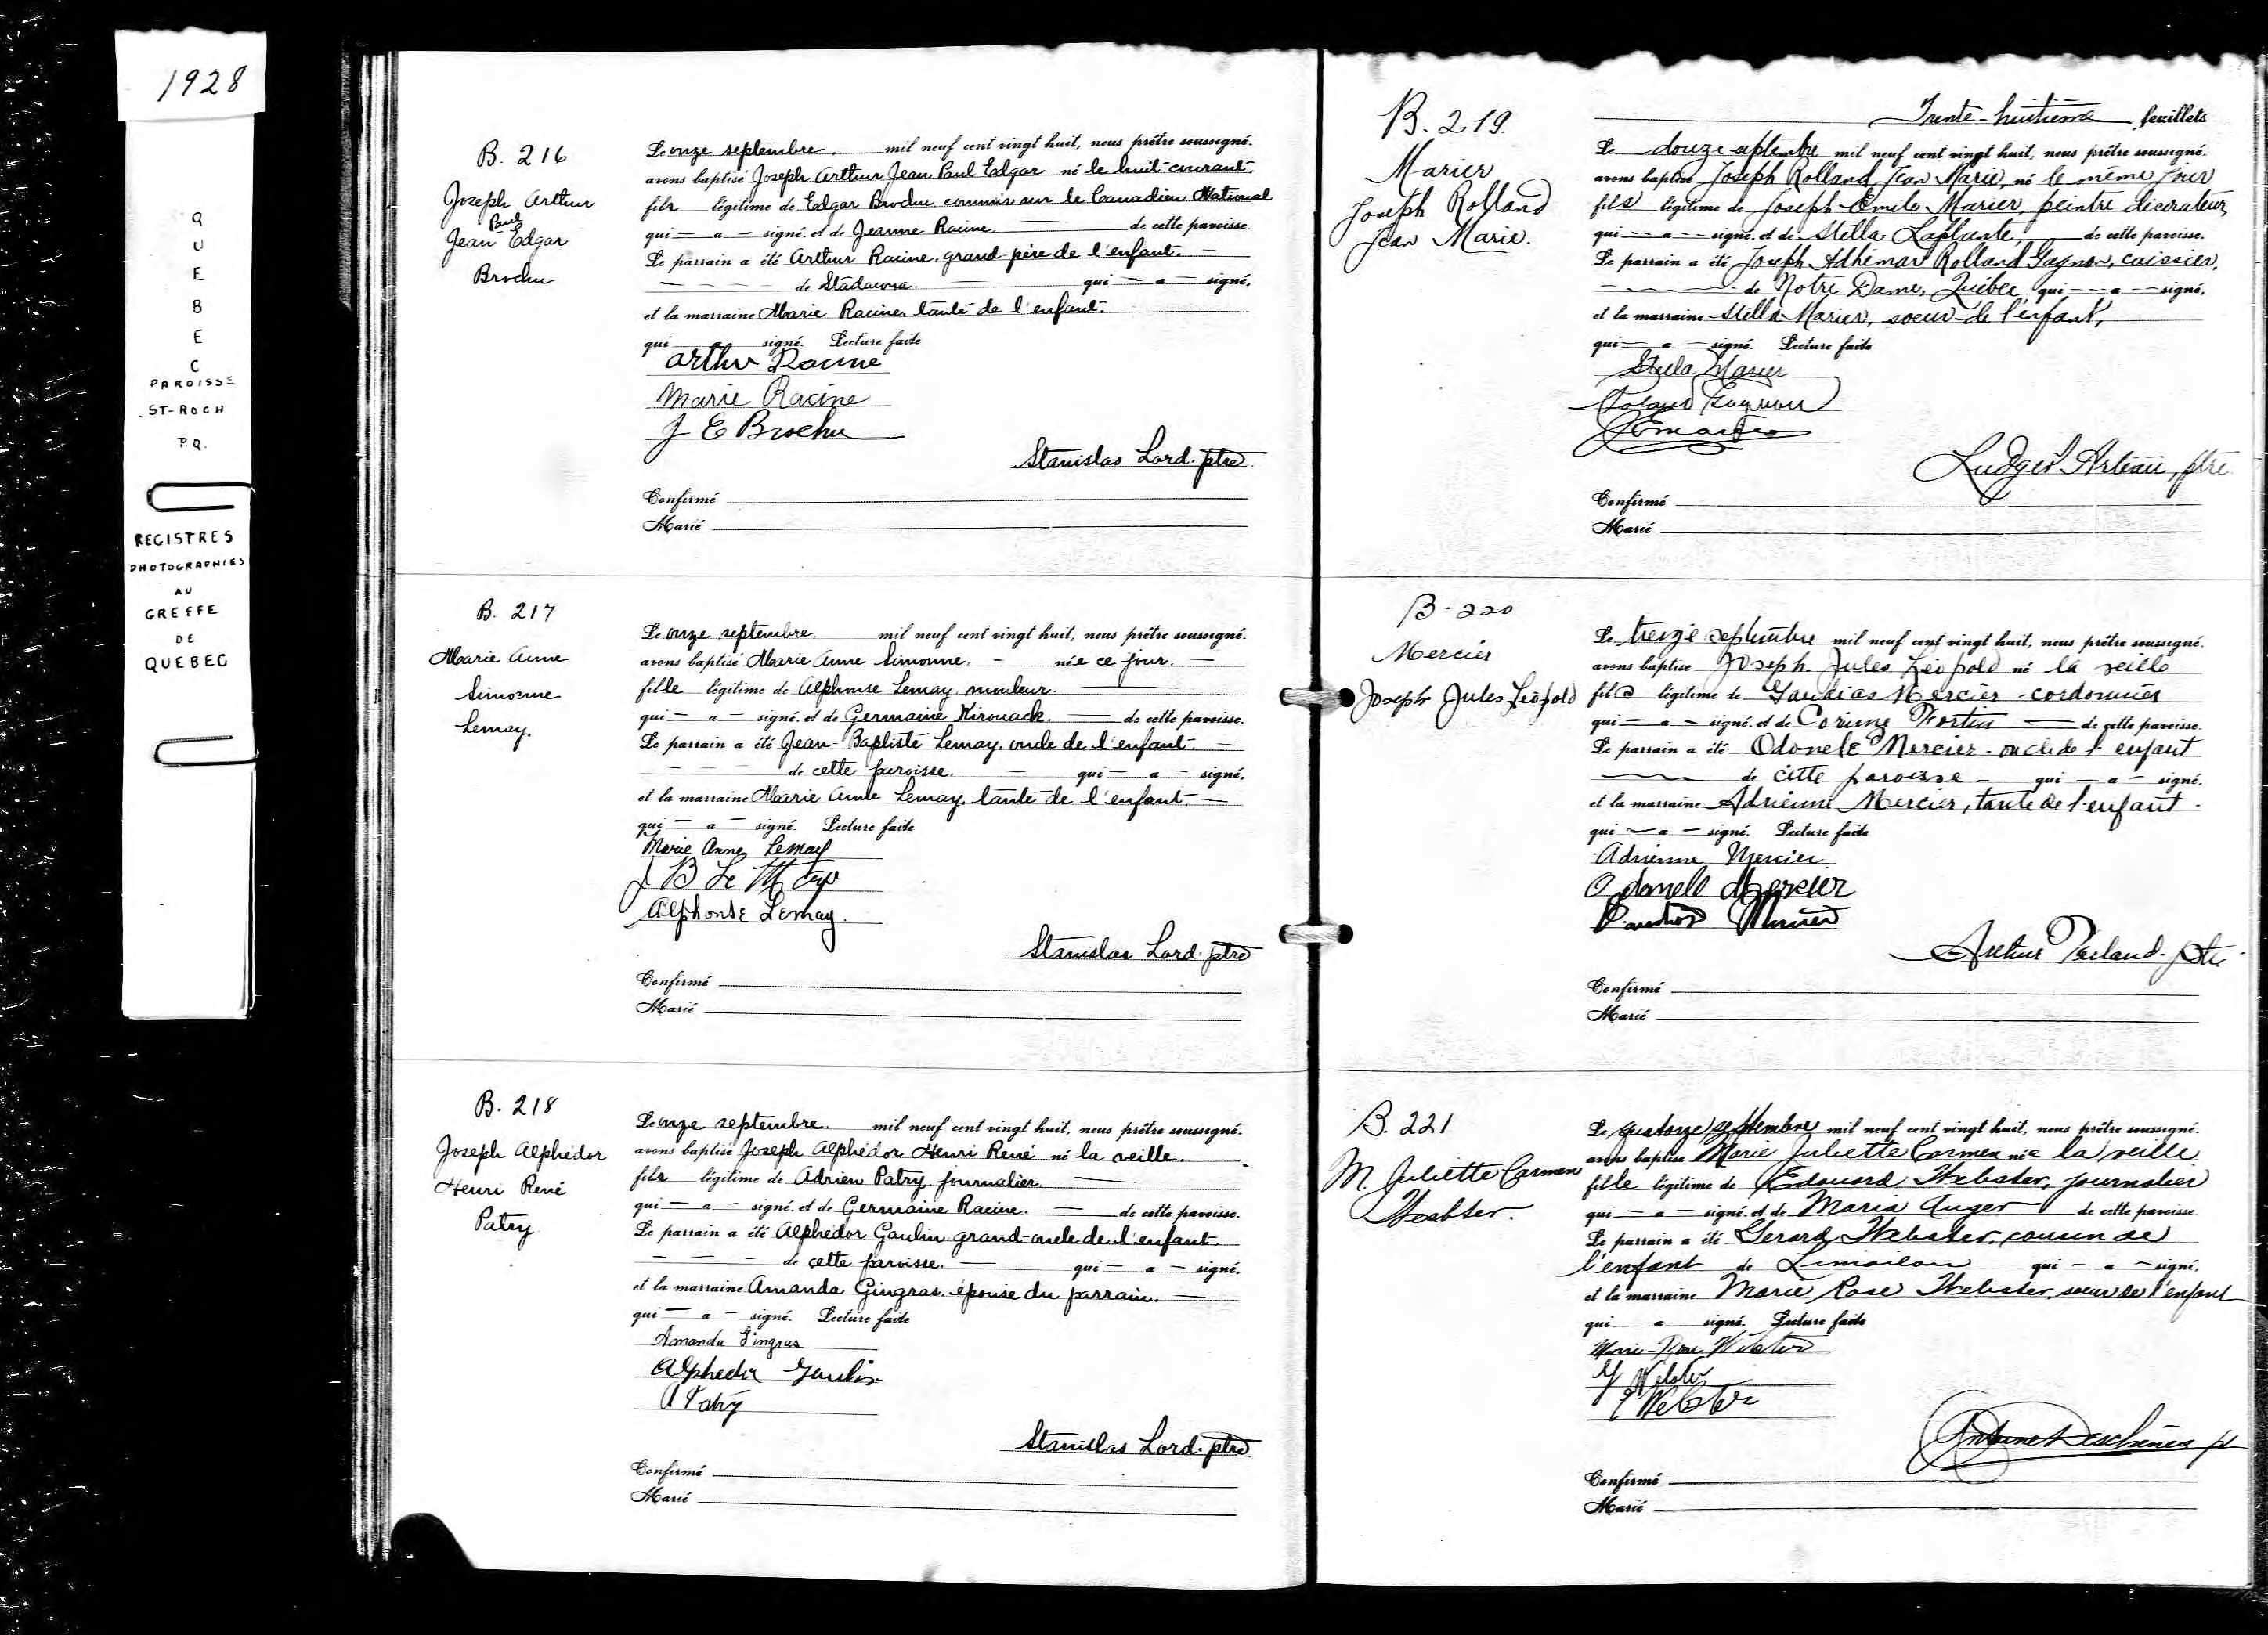 1928
QUEBEC
PAROISSE
ST-ROCH
P.Q.
REGISTRES
PHOTOGRAPHIES
AU
GREFFE
DE
QUEBEC
B. 216
Joseph Arthur
Paul
Jean Edgar
Brochu
Le onze septembre. mil neuf cent vingt huit, nous prêtre soussigné.
avons baptisé Joseph Arthur Jean Paul Edgar né le huit courant.
fils légitime de Edgar Brochu commis sur le Canadien National
qui — a — signé. et de Jeanne Racine. — de cette paroisse.
Le parrain a été Arthur Racine, grand-père de l'enfant. —
— de Stadacona. — qui — a — signé,
et la marraine Marie Racine, tante de l'enfant.
qui signé. Lecture faite
Arthur Racine
Marie Racine
J E Brochu
Stanislas Lord. ptre
Confirmé
Marié
B. 217
Marie Anne
Simonne
Lemay.
Le onze septembre. mil neuf cent vingt huit, nous prêtre soussigné.
avons baptisé Marie Anne Simonne. — née ce jour. —
fille légitime de Alphonse Lemay, mouleur. —
qui — a — signé. et de Germaine Kirouack. — de cette paroisse.
Le parrain a été Jean-Baptiste Lemay, oncle de l'enfant. —
— de cette paroisse. — qui — a — signé.
et la marraine Marie Anne Lemay, tante de l'enfant. —
qui — a — signé. Lecture faite
Marie Anne Lemay
J B Le May
Alphonse Lemay.
Stanislas Lord. ptre
Confirmé
Marié
B. 218
Joseph Alphédor
Henri René
Patry
Le onze septembre. mil neuf cent vingt huit, nous prêtre soussigné.
avons baptisé Joseph Alphédor Henri René né la veille.
fils légitime de Adrien Patry, journalier. —
qui — a — signé. et de Germaine Racine. — de cette paroisse.
Le parrain a été Alphédor Gaulin grand-oncle de l'enfant.
— de cette paroisse. — qui — a — signé.
et la marraine Amanda Gingras, épouse du parrain. —
qui — a — signé. Lecture faite
Amanda Gingras
Alphedor Gaulin
A Patry
Stanislas Lord. ptre
Confirmé
Marié
Trente-huitième feuillets
B. 219.
Marier
Joseph Rolland
Jean Marie.
Le douze septembre mil neuf cent vingt huit, nous prêtre soussigné.
avons baptisé Joseph Rolland Jean Marie, né le même jour
fils légitime de Joseph-Emile Marier, peintre décorateur,
qui — a — signé. et de Stella Laplante, de cette paroisse.
Le parrain a été Joseph Adhémar Rolland Gagnon, caissier,
— de Notre Dame, Québec qui — a — signé,
et la marraine Stella Marier, soeur de l'enfant,
qui — a — signé. Lecture faite
Stella Marier
Roland Gagnon
Ludger Arteau, ptre
Confirmé
Marié
B-220
Mercier
Joseph Jules Léopold
Le treize septembre mil neuf cent vingt huit, nous prêtre soussigné.
avons baptisé Joseph Jules Léopold né la veille
fils légitime de Gaudias Mercier - cordonnier
qui — a — signé. et de Corinne Fortin — de cette paroisse.
Le parrain a été Odonele Mercier - oncle de l'enfant
— de cette paroisse — qui — a — signé.
et la marraine Adrienne Mercier, tante de l'enfant.
qui — a — signé. Lecture faite
Adrienne Mercier
Odonell Mercier
Gaudias Mercier
Arthur Parland. ptre
Confirmé
Marié
B. 221
M. Juliette Carmen
Webster.
Le quatorze septembre mil neuf cent vingt huit, nous prêtre soussigné.
avons baptisé Marie Juliette Carmen née la veille
fille légitime de Edouard Webster, journalier
qui — a — signé. et de Maria Auger de cette paroisse.
Le parrain a été Gerard Webster, cousin de
l'enfant de Limoilou qui — a — signé.
et la marraine Marie Rose Webster, soeur de l'enfant
qui a signé. Lecture faite
Marie-Rose Webster
G Webster
E Webster
Antoine Deschênes p
Confirmé
Marié